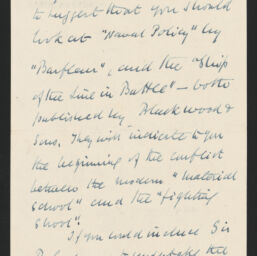 to suggest that you should
look at "Naval Policy" by
"Barfleur", and the "Ship
of the Line in Battle" – both
published by Blackwood &
Sons. They will indicate to you
the beginning of the conflict
between the modern "material
school" and the "fighting
school".
If you could induce Sir
the